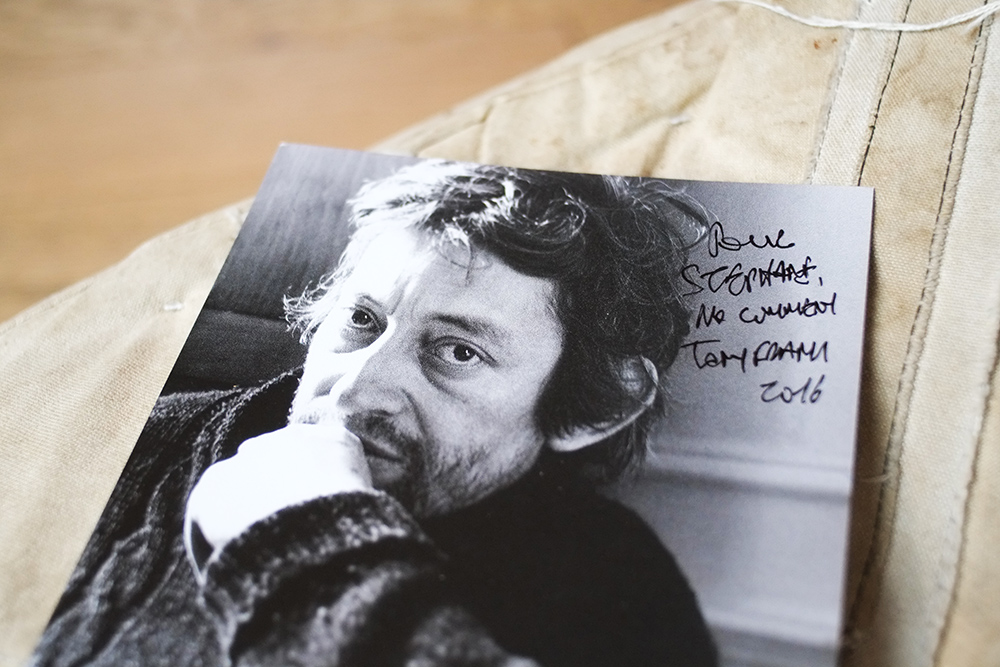 Pour
STEPHANE,
No COMMENT
Tony FRANK
2016